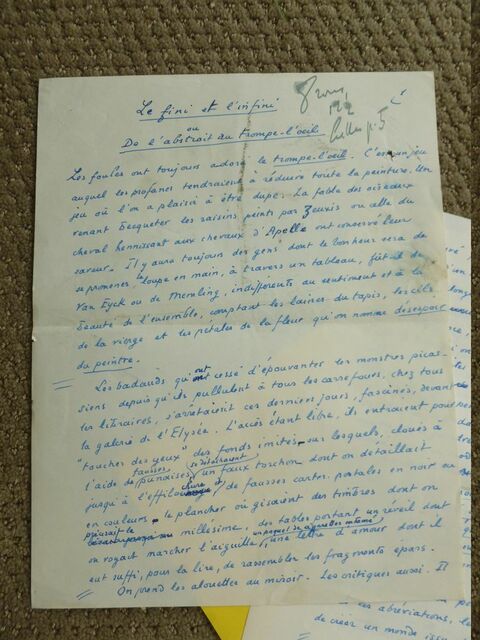 Le fini et l'infini
ou
De l'abstrait au trompe-l'oeil
p. 5
Les foules ont toujours adoré le trompe-l'oeil. C'est un jeu
auquel les profanes tendraient à réduire toute la peinture. Un
jeu où l'on a plaisir à être dupe. La fable des oiseaux
venant becqueter les raisins peints par Zeuxis ou celle du
cheval hennissant aux chevaux d'Apelle ont conservé leur
saveur. Il y aura toujours des gens dont le bonheur sera de
se promener, loupe en main, à travers un tableau, fût-il de
Van Eyck ou de Memling, indifférents au sentiment et à la
beauté de l'ensemble, comptant les laines du tapis, les cils
de la vierge et les pétales de la fleur qu'on nomme désespoir
du peintre.
Les badauds qu'ont cessé d'épouvanter les monstres picas-
siens depuis qu'ils pullulent à tous les carrefours, chez tous
les libraires, s'arrêtaient ces derniers jours, fascinés, devant
la galerie de l'Elysée. L'accès étant libre, ils entraient pour
"toucher des yeux" des fonds imités sur lesquels, cloués à
fausses se détachaient
l'aide de punaises, un faux torchon dont on détaillait
jusqu'à l'effilochure de fausses cartes postales en noir ou
en couleurs, le plancher où gisaient des timbres dont on
précisait le
millésime, des tables portant un réveil dont
un paquet de gauloises entamé
on voyait marcher l'aiguille, une lettre d'amour dont il
eut suffi, pour la lire, de rassembler les fragments épars.
On prend les alouettes au miroir. Les critiques aussi. Il
les abréviations, les
de créer un monde issu